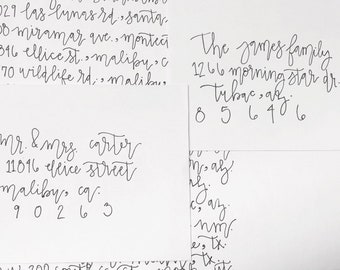 029 las lunas rd., santa
08 miramar ave., montec
846 ellice st., malibu, c
70 wildlife rd., malibu,
The James family
1266 morning star dr.
tubac, az.
8 5 6 4 6
mr. & mrs. carter
11846 ellice street
malibu, ca.
9 0 2 6 3
az.
c, az.
nm.
e, tx.
tx.